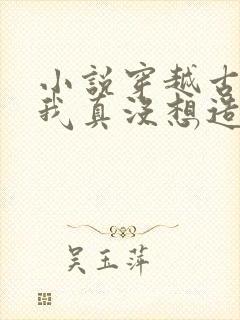 小说穿越古
我真没想造
吴玉萍